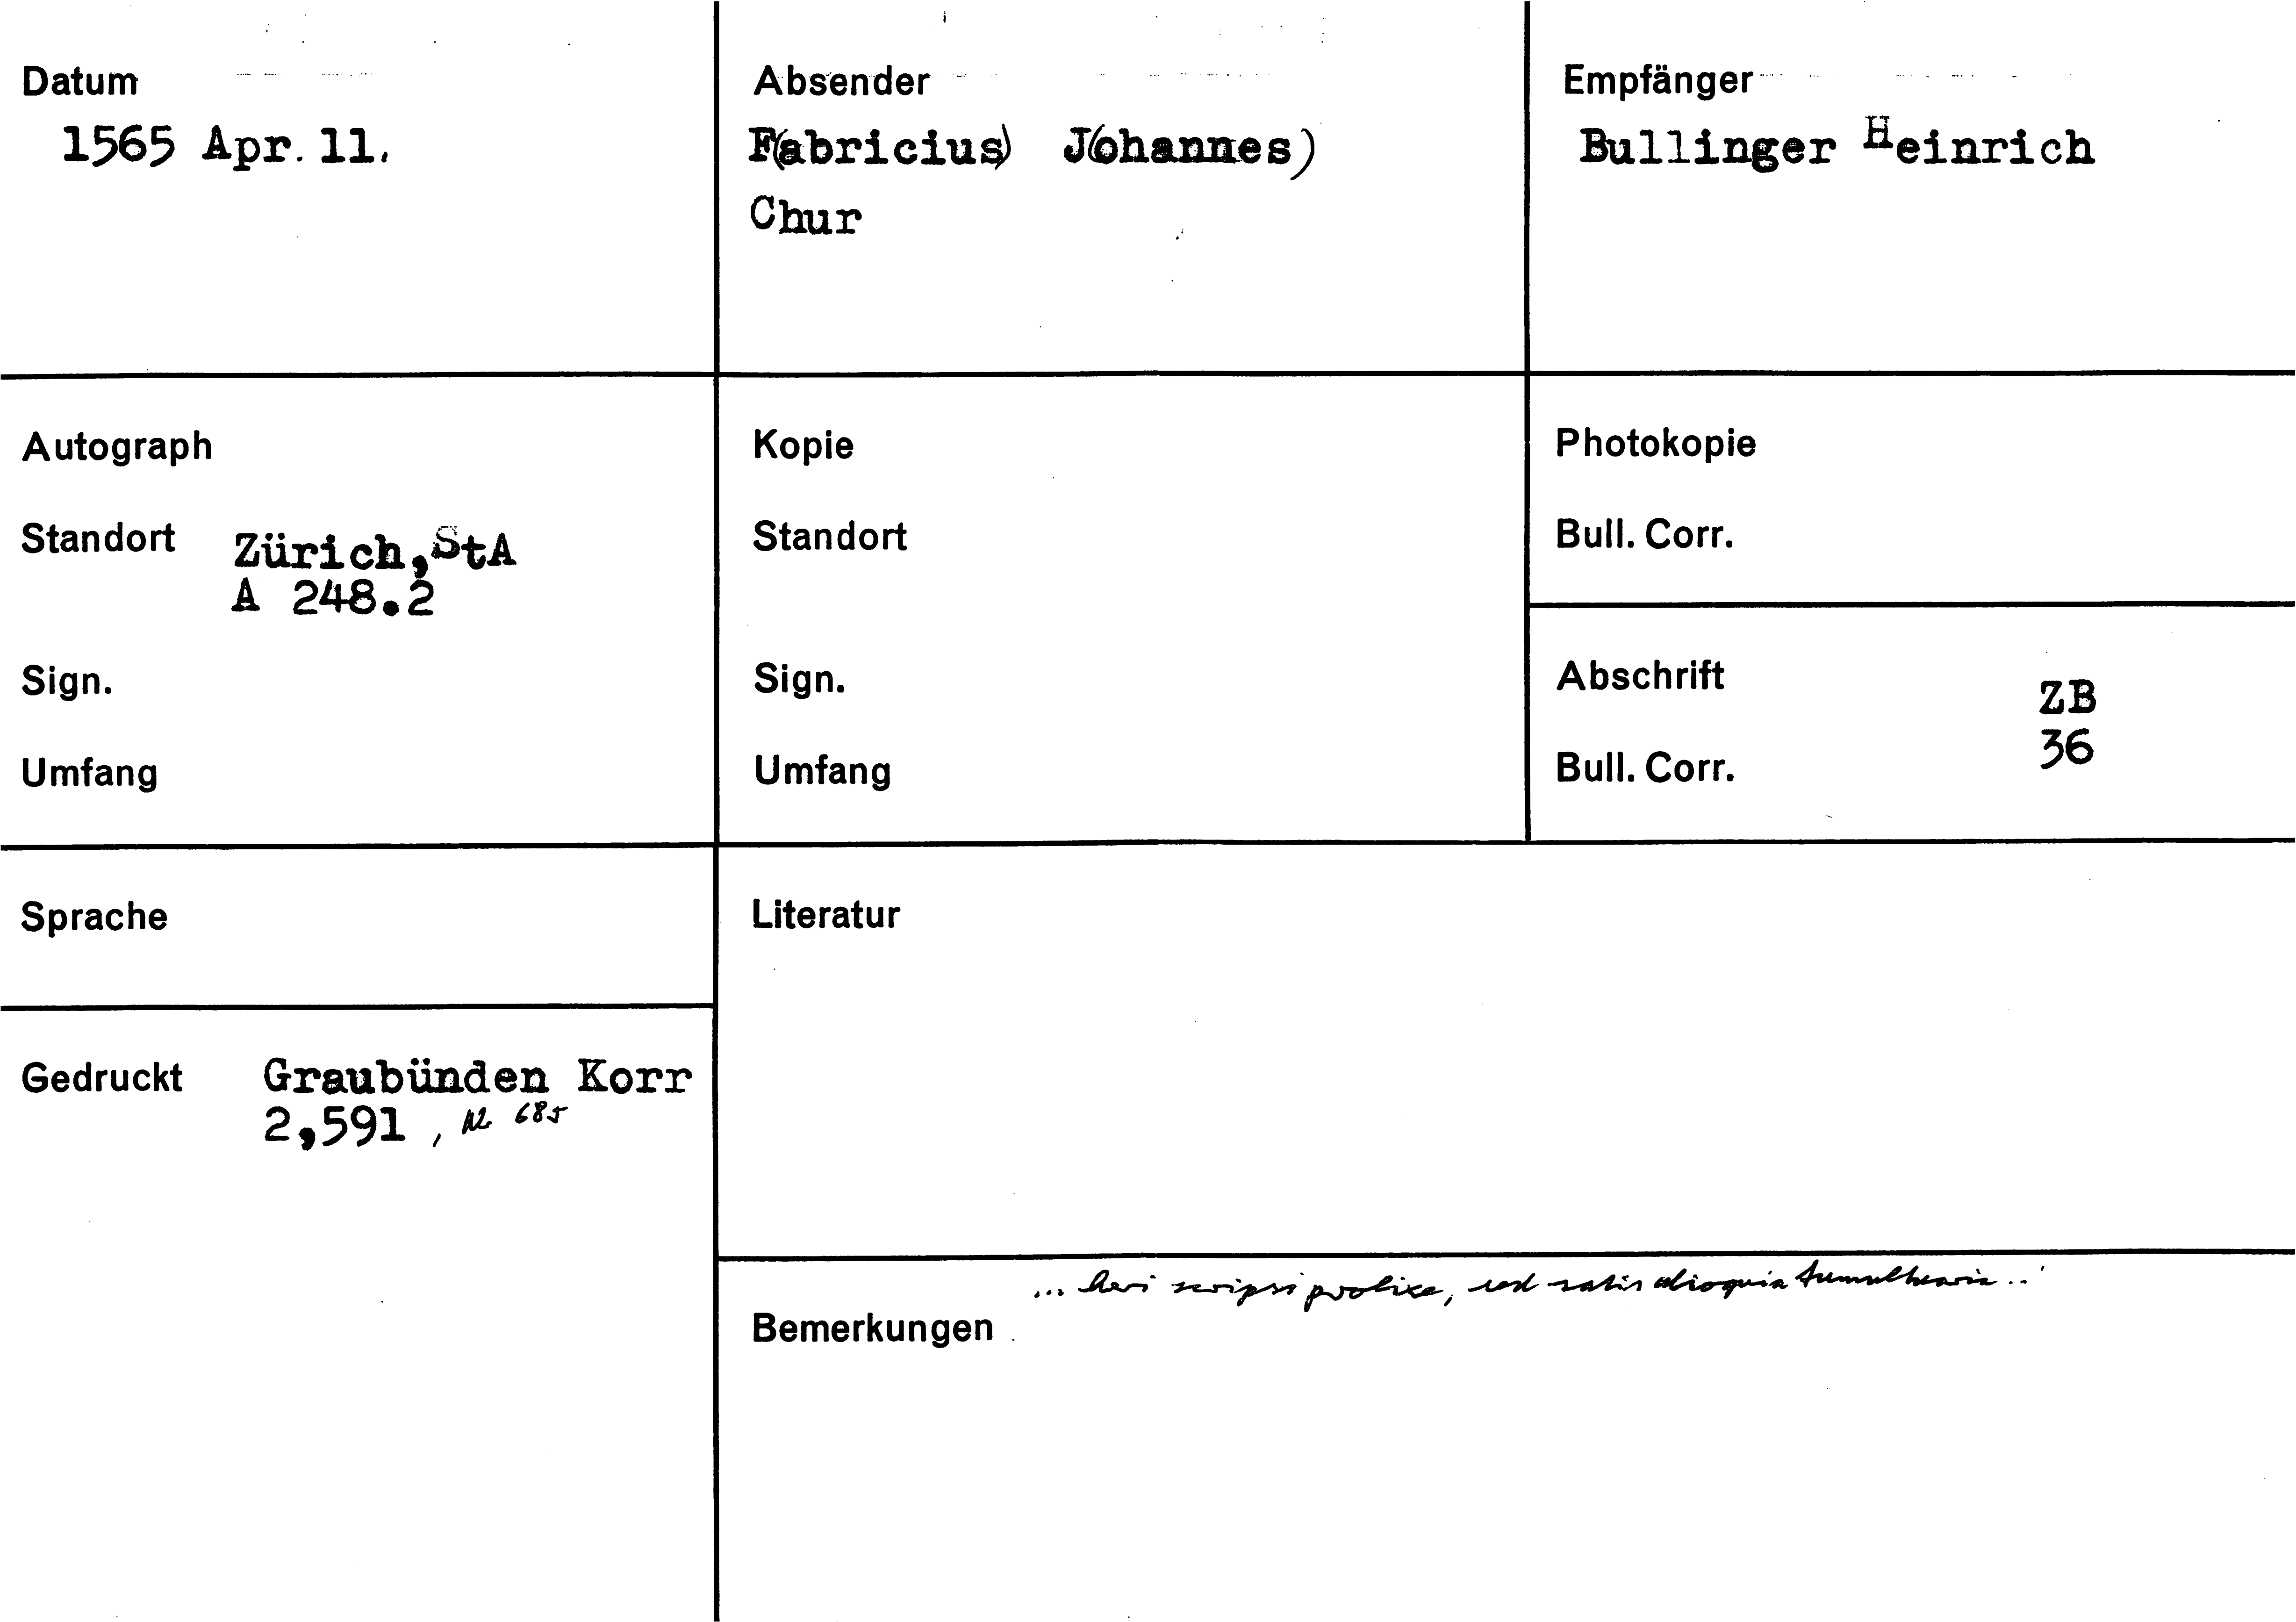 Datum
1565 Apr. 11.
Absender
F(abricius) J(ohannes)
Chur
Empfänger
Bullinger Heinrich
Autograph
Standort Zürich, StA
A 248.2
Sign.
Umfang
Kopie
Standort
Sign.
Umfang
Photokopie
Bull. Corr.
Abschrift ZB
36
Bull. Corr.
Sprache
Gedruckt Graubünden Korr
2,591, Nr 685
Literatur
... heri scripsi prolixe, sed satis alioquin tumultuarie ..
Bemerkungen